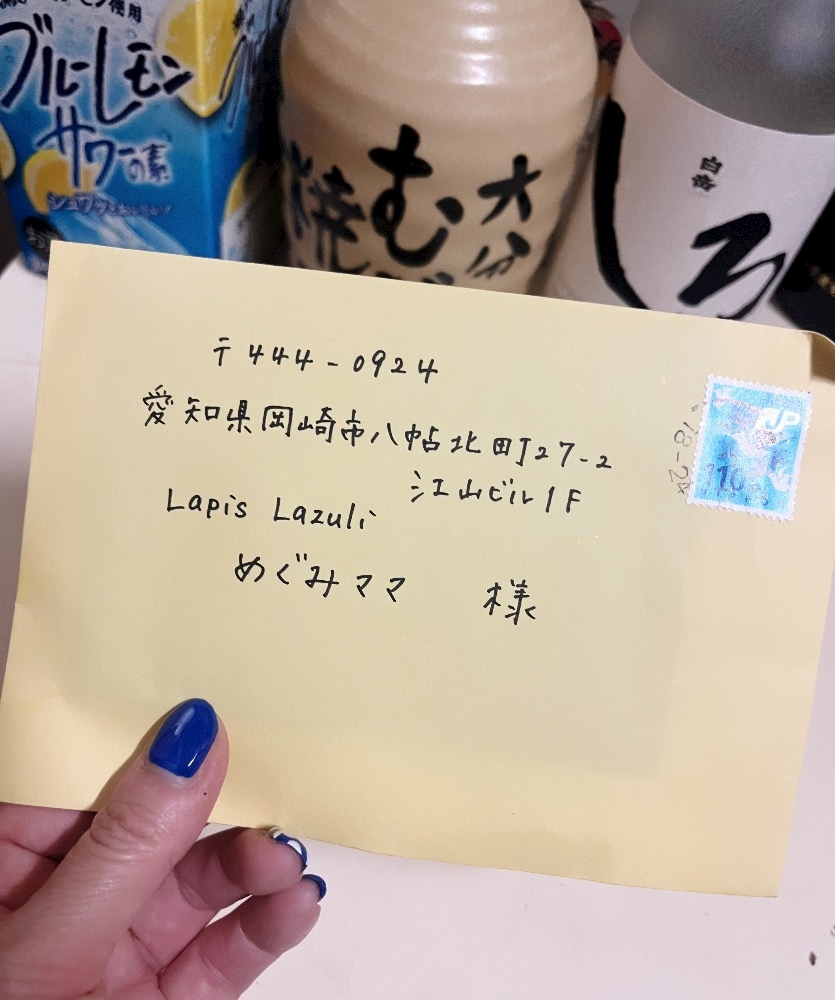 使用
ブルーレモン
サワーの素
大分
むぎ
焼
白岳
しろ
〒444-0924
愛知県岡崎市八帖北町27-2
江山ビル1F
Lapis Lazuli
めぐみママ 様
JP
110
18-24